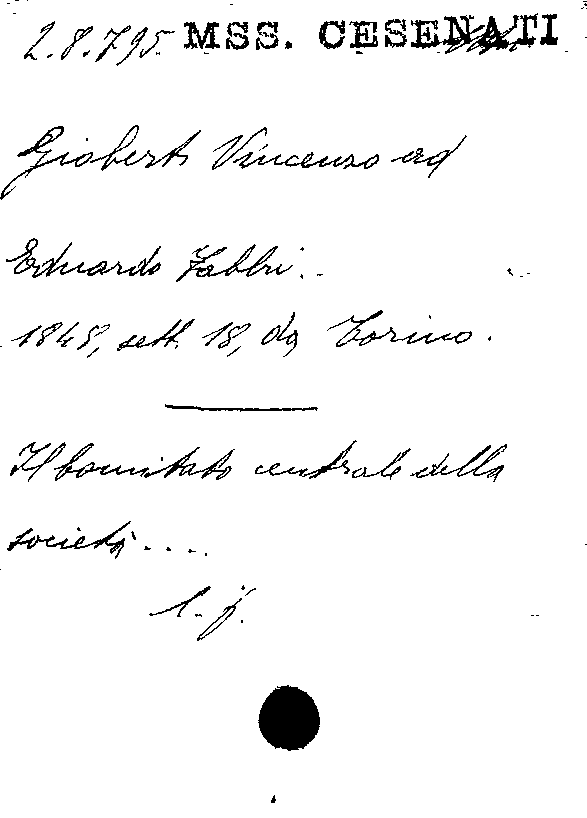 2.8.795. MSS. CESENATI
Gioberti Vincenzo ad
Eduardo Fabbri.
1848, sett. 18, da Torino.
Il Comitato centrale della
società....
l. f.